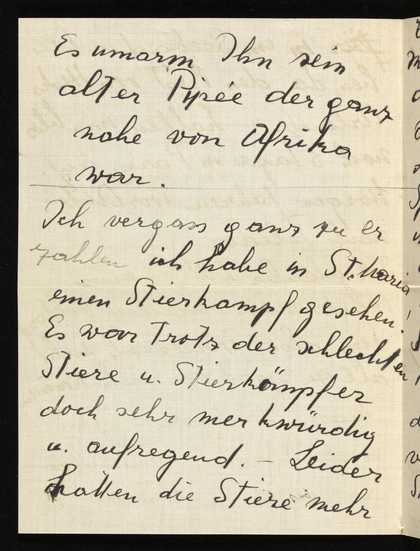 Es umarm Ihn sein
alter Pipée der ganz
nahe von Afrika
war.
Ich vergass ganz zu er
zahlen ich habe in St. Maria
einen Stierkampf gesehen!
Es war trotz der schlechten
Stiere u. Stierkämpfer
doch sehr merkwürdig
u. aufregend. – Leider
hatten die Stiere mehr